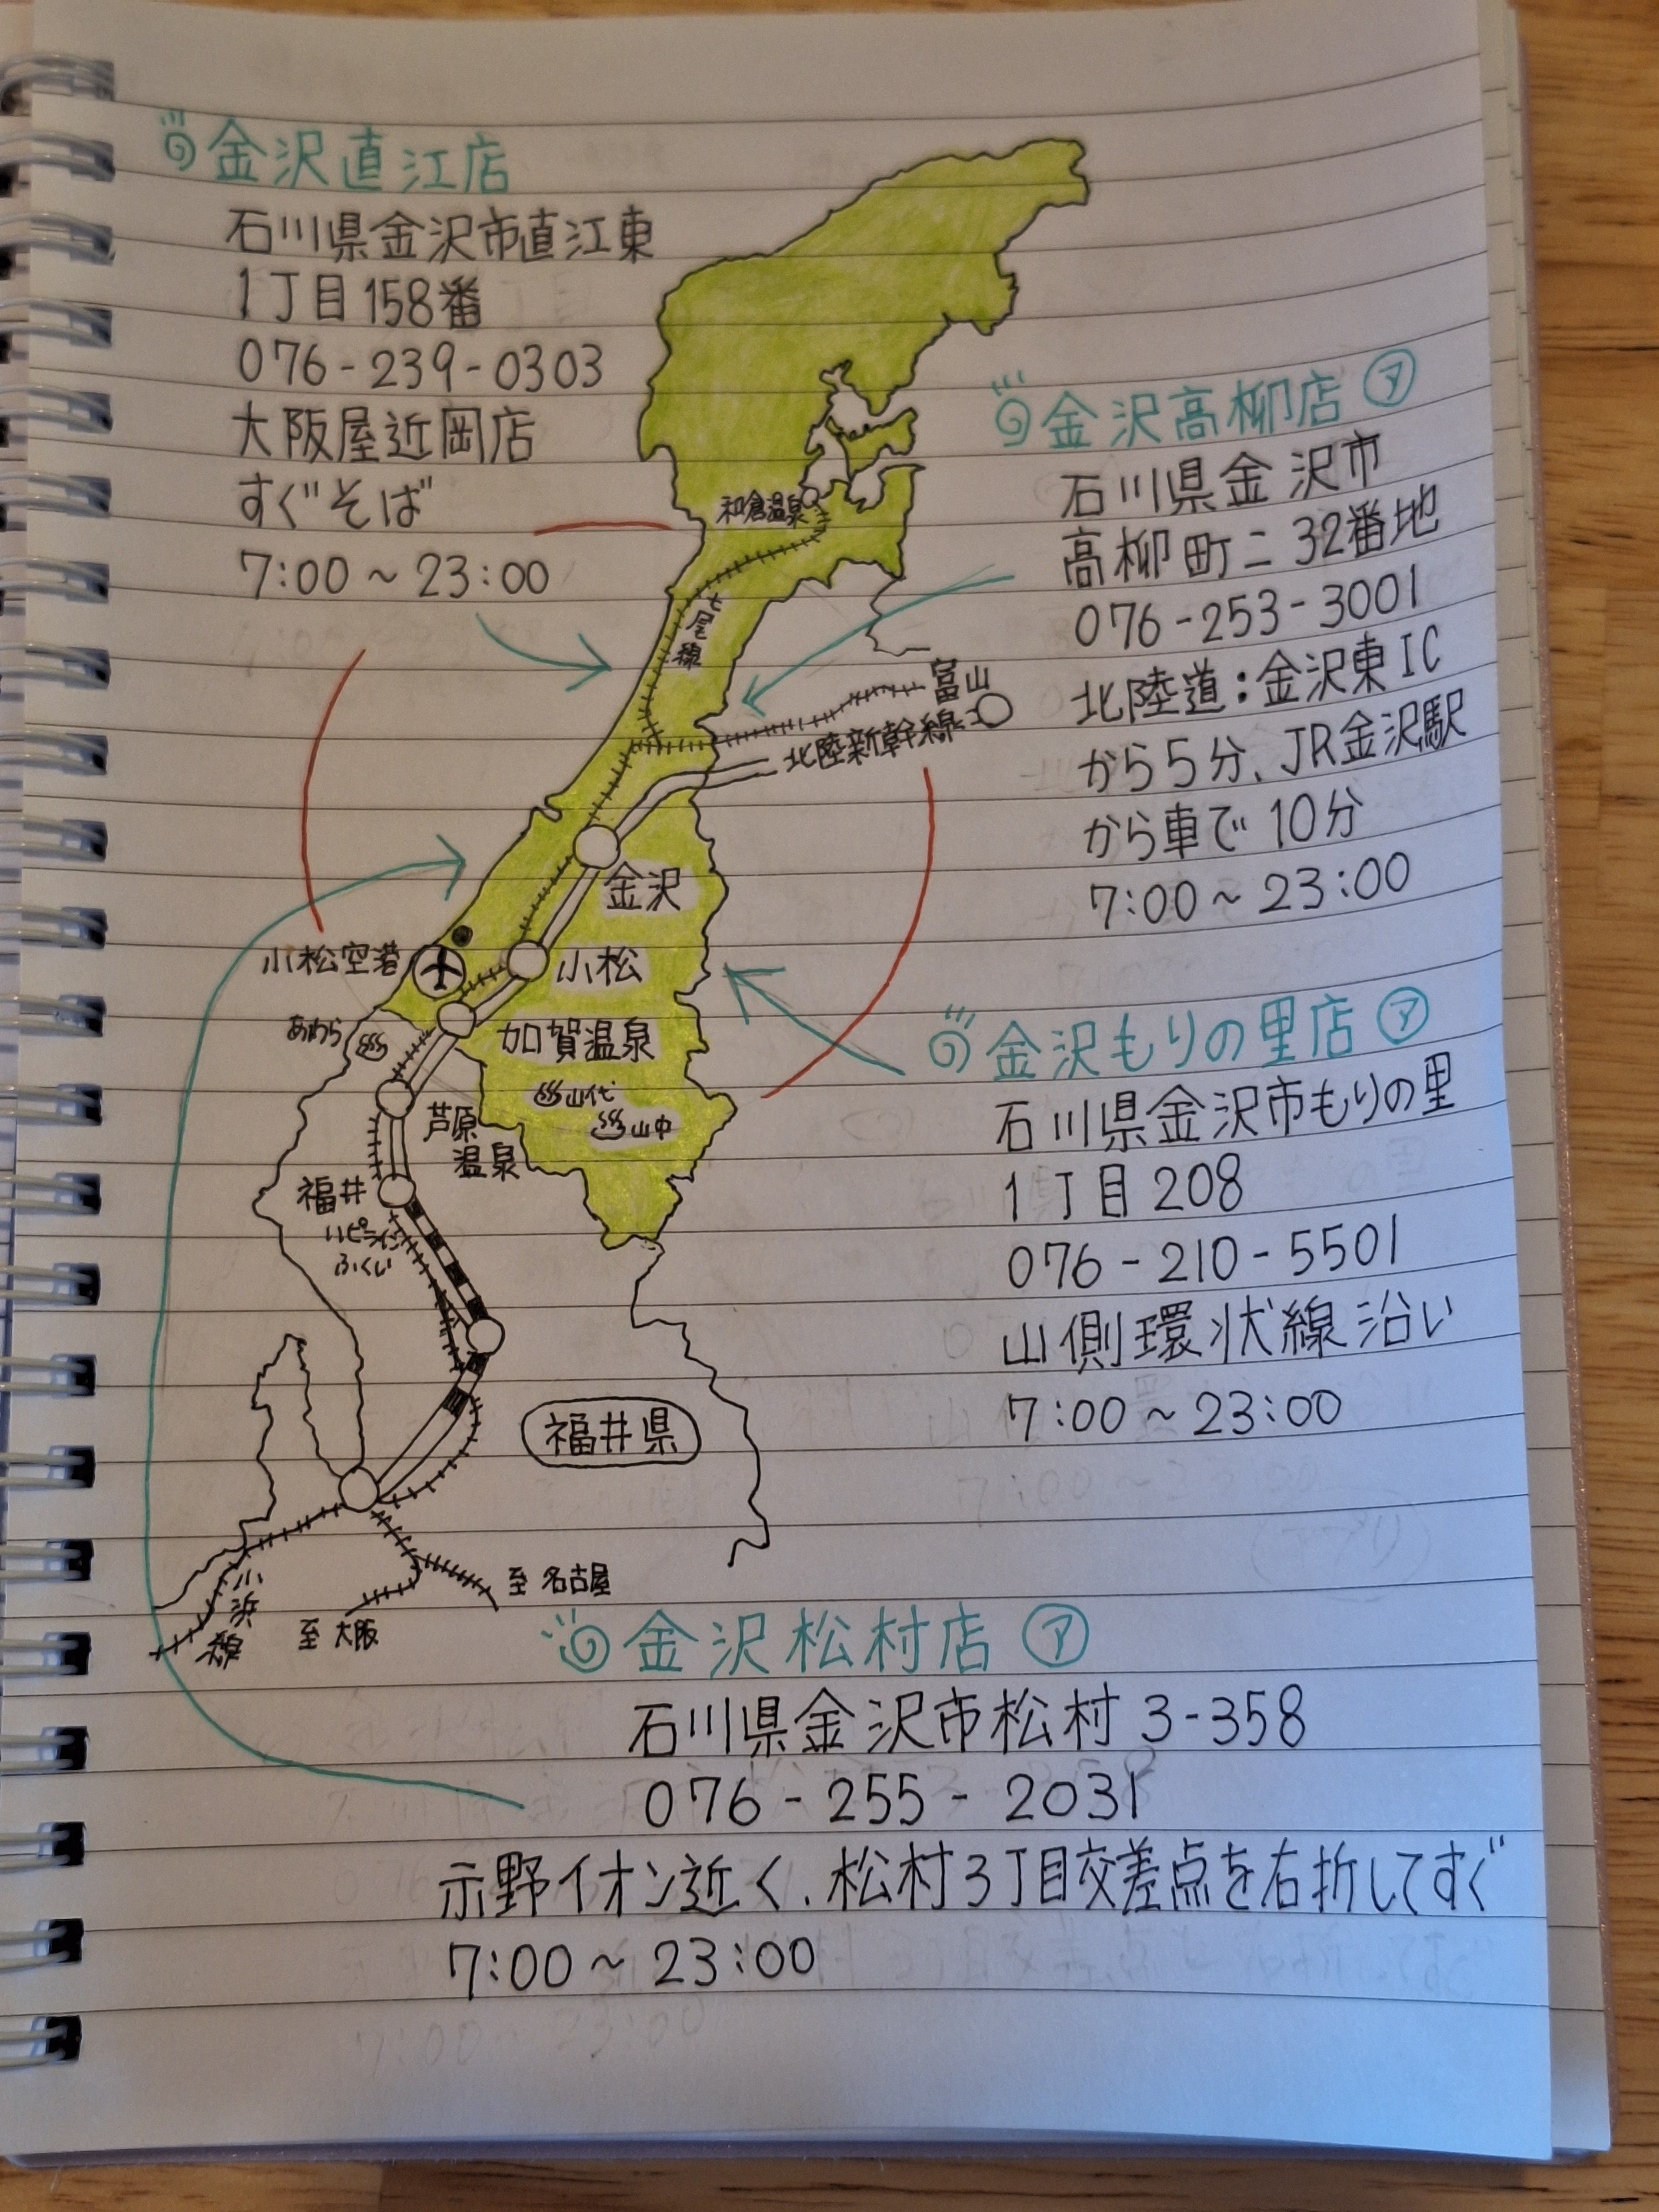 金沢直江店
石川県金沢市直江東
1丁目158番
076-239-0303
大阪屋近岡店
すぐそば
7:00~23:00
金沢高柳店 ㋐
石川県金沢市
高柳町ニ32番地
076-253-3001
北陸道:金沢東IC
から5分、JR金沢駅
から車で10分
7:00~23:00
和倉温泉
七尾線
富山
北陸新幹線
金沢
小松空港
小松
加賀温泉
あわら
山代
山中
芦原
温泉
福井
ハピライン
ふくい
福井県
小浜線
至大阪
至名古屋
金沢もりの里店 ㋐
石川県金沢市もりの里
1丁目208
076-210-5501
山側環状線沿い
7:00~23:00
金沢松村店 ㋐
石川県金沢市松村3-358
076-255-2031
示野イオン近く、松村3丁目交差点を右折してすぐ
7:00~23:00